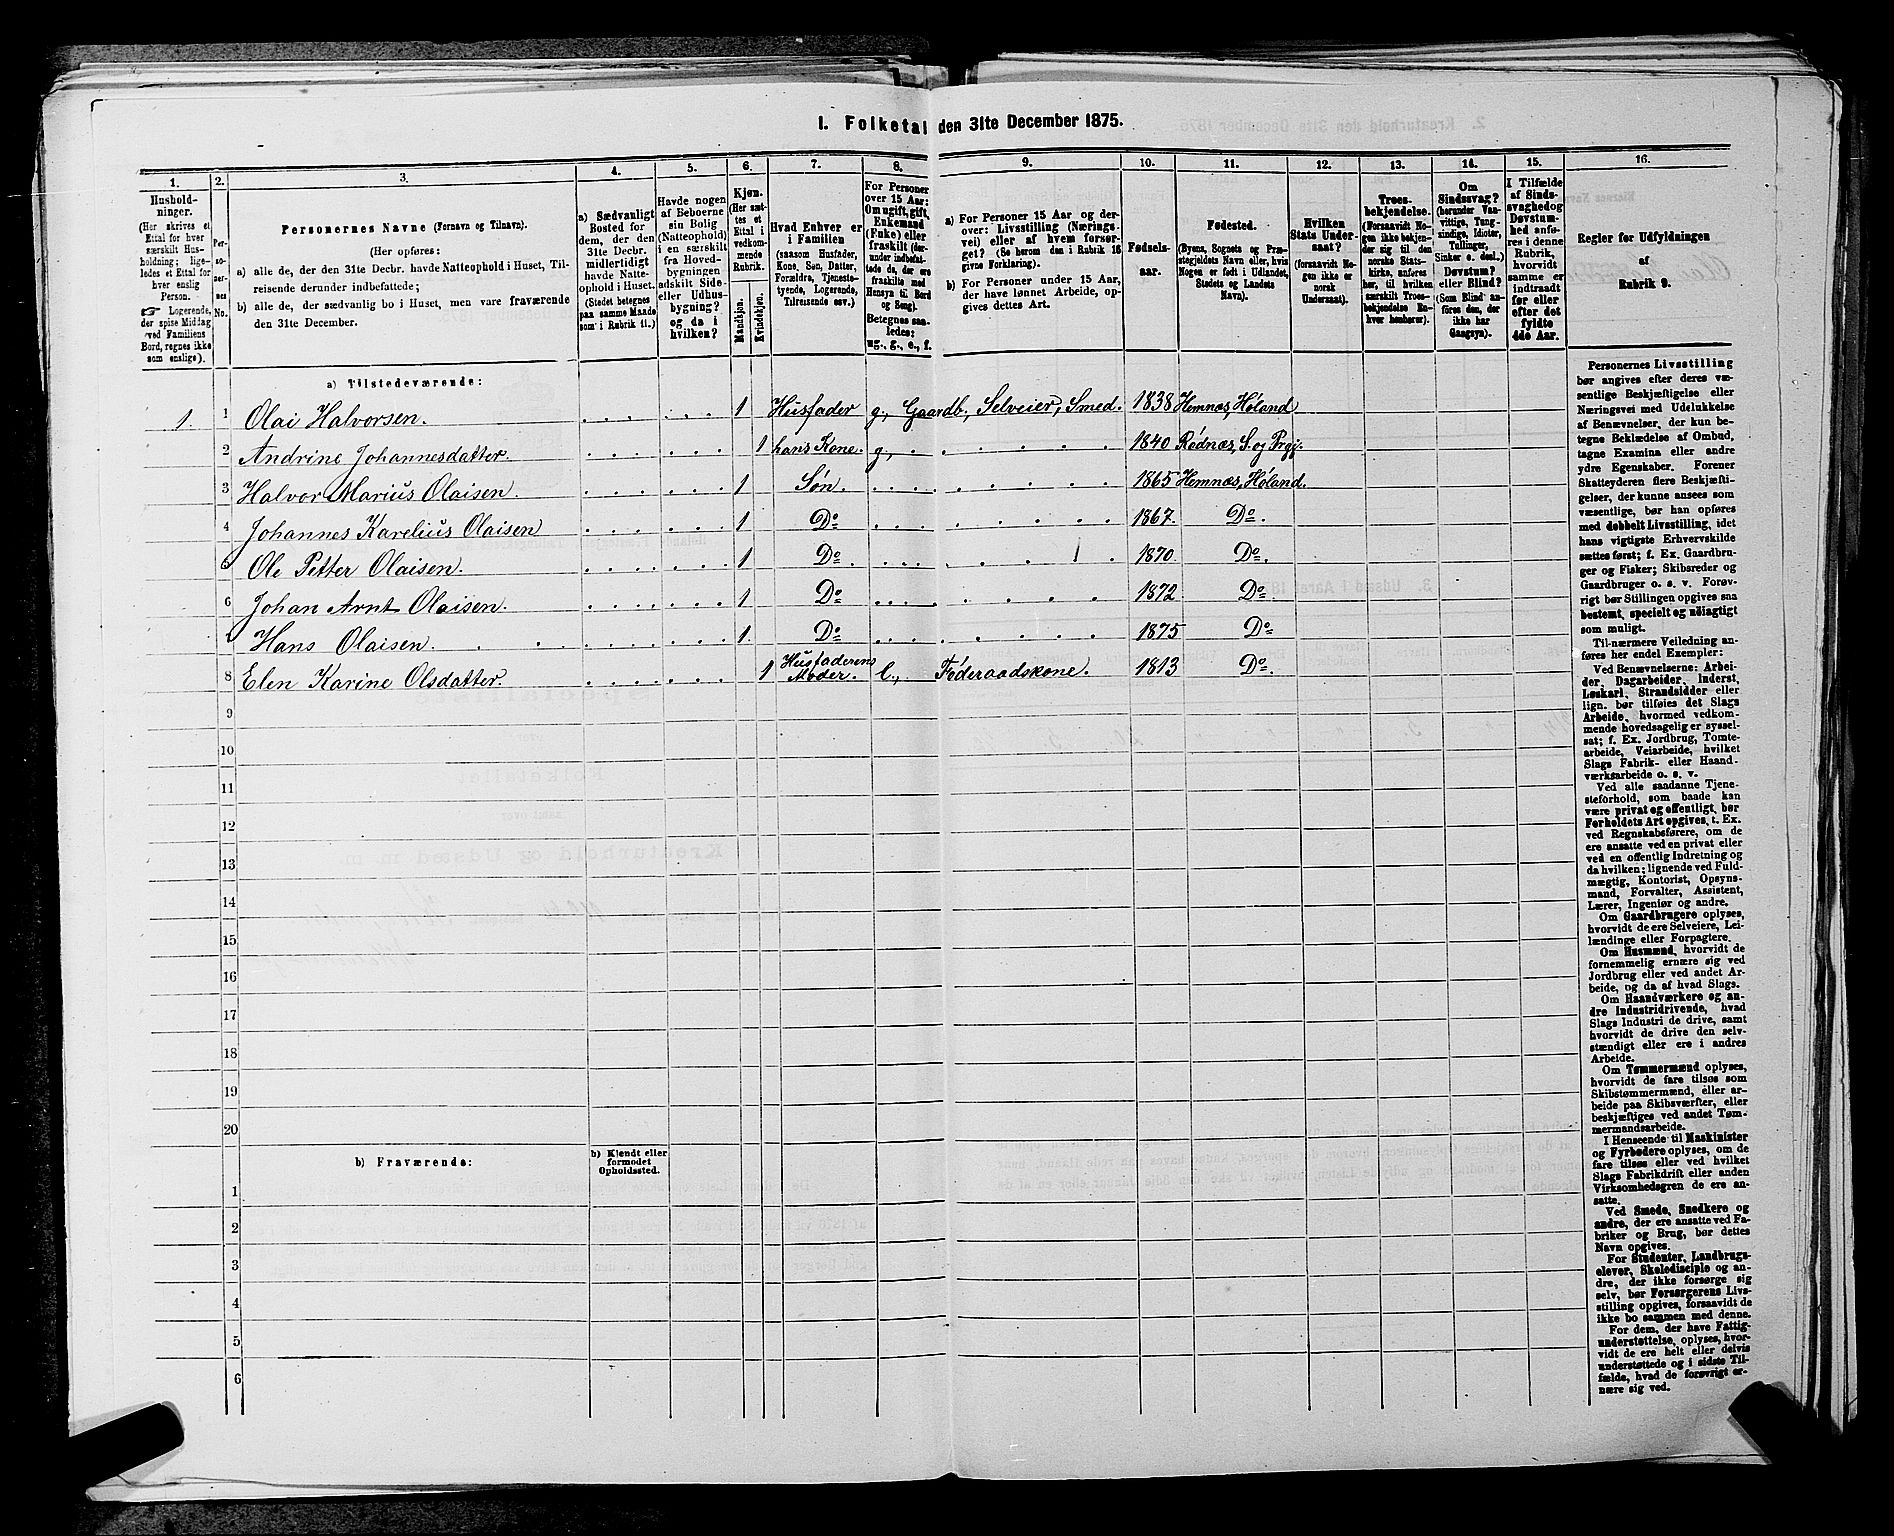 I. Folketal den 31te December 1875.
1.
Hushold-
ninger.
(Her skrives et
Ettal for hver
særskilt Hus-
holdning; lige-
ledes et Ettal for
hver enslig
Person.
☞ Logerende,
der spise Middag
ved Familiens
Bord, regnes ikke
som enslige).
2.
Per-
so-
ner-
nes
No.
3.
Personernes Navne (Fornavn og Tilnavn).
(Her opføres:
a) alle de, der den 31te Decbr. havde Natteophold i Huset, Til-
reisende derunder indbefattede;
b) alle de, der sædvanlig bo i Huset, men vare fraværende
den 31te December.
4.
a) Sædvanligt
Bosted for
dem, der den
31te Decbr.
midlertidigt
havde Natte-
ophold i Huset.
(Stedet betegnes
paa samme Maade
som i Rubrik 11.)
5.
Havde nogen
af Beboerne
sin Bolig
(Natteophold)
i en særskilt
fra Hoved-
bygningen
adskilt Side-
eller Udhus-
bygning?
og da i
hvilken?
6.
Kjøn.
(Her sæt-
tes et
Ettal i
vedkom-
mende
Rubrik.
Mandkjøn.
Kvindekjøn.
7.
Hvad Enhver er
i Familien
(saasom Husfader,
Kone, Søn, Datter,
Forældre, Tjeneste-
tyende, Logerende,
Tilreisende osv.)
8.
For Personer
over 15 Aar:
Om ugift, gift,
Enkemand
(Enke) eller
fraskilt (der-
under indbefat-
tede de, der ere
fraskilte med
Hensyn til Bord
og Seng).
Betegnes saa-
ledes:
ug., g., e., f.
9.
a) For Personer 15 Aar og der-
over: Livsstilling (Nærings-
vei) eller af hvem forsør-
get? (Se herom den i Rubrik 16
givne Forklaring).
b) For Personer under 15 Aar,
der have lønnet Arbeide, op-
gives dettes Art.
10.
Fødsels-
aar.
11.
Fødested.
(Byens, Sognets og Præ-
stegjeldets Navn eller, hvis
Nogen er født i Udlandet,
Stedets og Landets
Navn).
12.
Hvilken
Stats Under-
saat?
(forsaavidt No-
gen ikke er
norsk
Undersaat).
13.
Troes-
bekjendelse.
(Forsaavidt No-
gen ikke bekjen-
der sig til den
norske Stats-
kirke, anføres
her, til hvilken
særskilt Troes-
bekjendelse En-
hver henhører).
14.
Om
Sindssvag?
(herunder Van-
vittige, Tung-
sindige, Idioter,
Tullinger,
Sinker o. desl.)
Døvstum?
eller Blind?
(Som Blind anføres
den, der
ikke har
Gangsyn).
15.
I Tilfælde
af Sinds-
svaghed og
Døvstum-
hed anfø-
res i denne
Rubrik,
hvorvidt
samme er
indtraadt
før eller
efter det
fyldte
4de Aar.
16.
Regler for Udfyldningen
af
Rubrik 9.
a) Tilstedeværende:
1. 1 Olai Halvorsen. 1 Husfader g., Gaardb., Selveier, Smed. 1838 Hemnæs, Høland
2 Andrine Johannesdatter. 1 hans Kone. g., 1840 Rødnæs, S. og Prgj.
3 Halvor Marius Olaisen. 1 Søn. 1865 Hemnæs, Høland.
4 Johannes Karelius Olaisen 1 Do 1867. Do.
5 Ole Petter Olaisen. 1 Do. 1870. Do.
6 Johan Arnt Olaisen. 1 Do 1872 Do.
7 Hans Olaisen. 1. Do 1875 Do
8 Elen Karine Olsdatter. 1 Husfaderens Moder. e., Føderaadskone. 1813 Do.
9
10
11
12
13
14
15
16
17
18
19
20
b) Fraværende:
b) Kjendt eller
formodet
Opholdssted.
1
2
3
4
5
6
Personernes Livsstilling
bør angives efter deres væ-
sentlige Beskjæftigelse eller
Næringsvei med Udelukkelse
af Benævnelser, der kun be-
tegne Beklædelse af Ombud,
tagne Examina eller andre
ydre Egenskaber. Forener
Skatteyderen flere Beskjæfti-
gelser, der kunne ansees som
væsentlige, bør han opføres
med dobbelt Livsstilling, idet
hans vigtigste Erhvervskilde
sættes først; f. Ex. Gaardbru-
ger og Fisker; Skibsreder og
Gaardbruger o. s. v. Forøv-
rigt bør Stillingen opgives saa
bestemt, specielt og nøiagtigt
som muligt.
Til nærmere Veiledning an-
føres her endel Exempler:
Ved Benævnelserne: Arbei-
der, Dagarbeider, Inderst,
Løskarl, Strandsidder eller
lign. bør tilføies det Slags
Arbeide, hvormed vedkom-
mende hovedsagelig er syssel-
sat; f. Ex. Jordbrug, Tomte-
arbeide, Veiarbeide, hvilket
Slags Fabrik- eller Haand-
værksarbeide o. s. v.
Ved alle saadanne Tjene-
steforhold, som baade kan
være privat og offentligt, bør
Forholdets Art opgives, t. Ex.
ved Regnskabsførere, om de
ere ansatte ved en privat eller
ved en offentlig Indretning og
da hvilken; lignende ved Fuld-
mægtig, Kontorist, Opsyns-
mand, Forvalter, Assistent,
Lærer, Ingeniør og andre.
Om Gaardbrugere oplyses,
hvorvidt de ere Selveiere, Lei-
lændinge eller Forpagtere.
Om Husmænd, hvorvidt de
fornemmelig ernære sig ved
Jordbrug eller ved andet Ar-
beide, og da af hvad Slags.
Om Haandværkere og an-
dre Industridrivende, hvad
Slags Industri de drive, samt
hvorvidt de drive den selv-
stændigt eller ere i andres
Arbeide.
Om Tømmermænd oplyses,
hvorvidt de fare tilsøs som
Skibstømmermænd, eller ar-
beide paa Skibsværfter, eller
beskjæftiges ved andet Tøm-
mermandsarbeide.
I Henseende til Maskinister
og Fyrbødere oplyses, om de
fare tilsøs eller ved hvilket
Slags Fabrikdrift eller anden
Virksomhedsgren de ere an-
satte.
Ved Smede, Snedkere og
andre, der ere ansatte ved Fa-
briker og Brug, bør dettes
Navn opgives.
For Studenter, Landbrugs-
elever, Skoledisciple og an-
dre, der ikke forsørge sig
selv, bør Forsørgerens Livs-
stilling opgives, forsaavidt de
ikke bo sammen med denne.
For dem, der have Fattig-
understøttelse, oplyses, hvor-
vidt de ere helt eller delvis
understøttede og i sidste Til-
fælde, hvad de forøvrigt er-
nære sig ved.